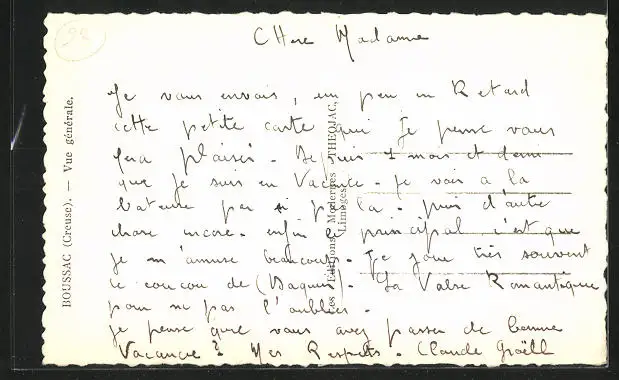 92
CHere Madame
Je vous envois, un peu en Retard
cette petite carte qui Je pense vous
fera plaisir. Depuis 1 mois et demi
que Je suis en Vacance. Je vais a la
bateuse par si par la. puis d'autre
chose encore. enfin le principal c'est que
je m'amuse beaucoup. Je joue très souvent
le coucou de (Daquin). La Valse Romantique
pour ne pas l'oublier.
je pense que vous avez passer de bonne
Vacance? Mes Respects. Claude
BOUSSAC (Creuse). — Vue générale.
Les Editions Modernes THEOJAC,
Limoges